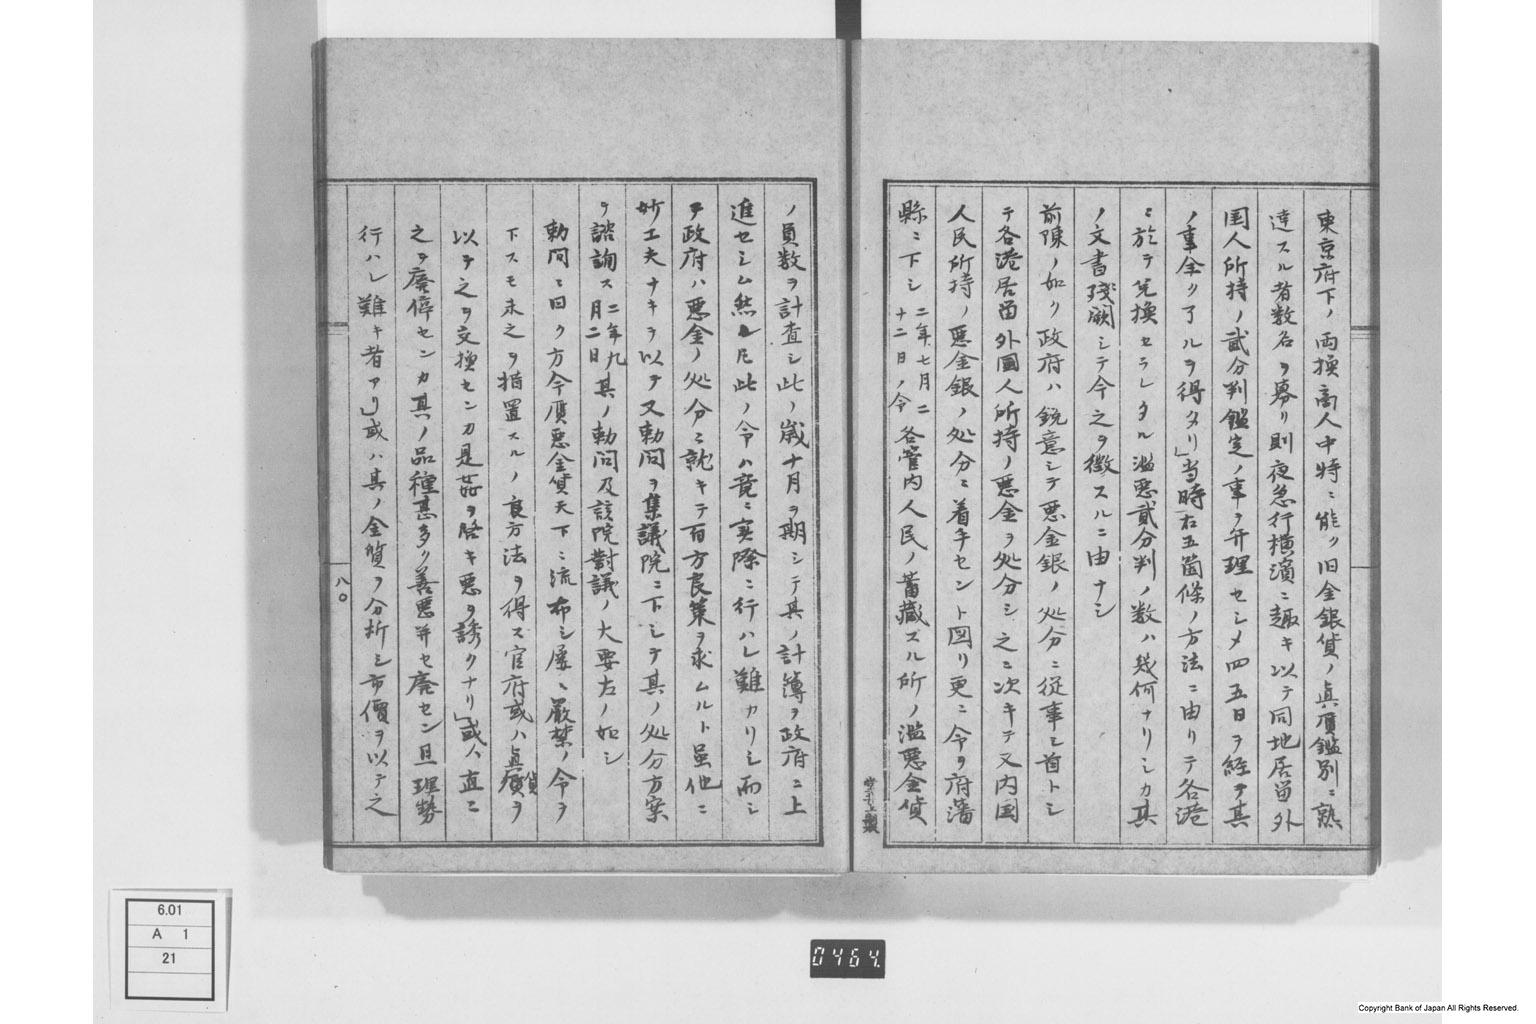 東京府下ノ両換商人中特ニ能ク旧金銀貨ノ真贋鑑別ニ熟
達スル者数名ヲ募リ則夜急行横濱ニ趣キ以テ同地居留外
国人所持ノ貳分判鑑定ノ事ヲ弁理セシメ四五日ヲ経テ其
ノ事全ク了ルヲ得タリ」当時右五箇條ノ方法ニ由リテ各港
ニ於テ兌換セラレタル濫悪貳分判ノ数ハ幾何ナリシカ其
ノ文書残闕シテ今之ヲ徴スルニ由ナシ
前陳ノ如ク政府ハ鋭意シテ悪金銀ノ処分ニ従事シ首トシ
テ各港居留外国人所持ノ悪金ヲ処分シ之ニ次キテ又内国
人民所持ノ悪金銀ノ処分ニ着手セント図リ更ニ令ヲ府藩
縣ニ下シ二年七月二十二日ノ令各管内人民ノ蓄蔵スル所ノ濫悪金貨
ノ員数ヲ計査シ此ノ歳十月ヲ期シテ其ノ計簿ヲ政府ニ上
進セシム然ルニ此ノ令ハ竟ニ実際ニ行ハレ難カリシ而シ
テ政府ハ悪金ノ処分ニ就キテ百方良策ヲ求ムルト虽他ニ
妙工夫ナキヲ以テ又勅問ヲ集議院ニ下シテ其ノ処分方案
ヲ諮詢ス二年九月二日其ノ勅問及該院對議ノ大要左ノ如シ
勅問ニ曰ク方今贋悪金貨天下ニ流布シ屡ニ厳禁ノ令ヲ
下スモ未之ヲ措置スルノ良方法ヲ得ス官府或ハ真貨ヲ
以テ之ヲ交換センカ是姦ヲ啓キ悪ヲ誘クナリ」或ハ直ニ
之ヲ廃停センカ其ノ品種甚多ク善悪并セ廃セン且理勢
行ハレ難キ者アリ」或ハ其ノ金質ヲ分析シ市價ヲ以テ之
八〇
6.01
A 1
21
0464
Copyright Bank of Japan All Rights Reserved.